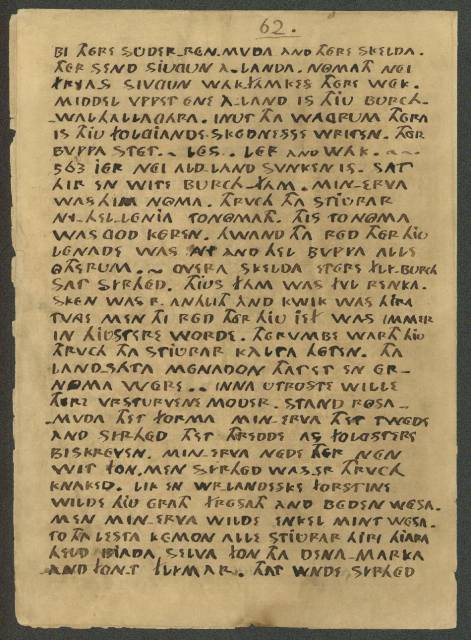 62.
BI THERE SUDER-REN.MVDA AND THERE SKELDA.
THER SEND SIUGUN A-LANDA. NOMATH NEI
FRYAS SIUGUN WAKFAMKES THERE WEK.
MIDDEL VPPET ENE A-LAND IS THIU BURCH-
WALHALLAGARA. INUT THA WAGRUM THERA
IS THIU FOLGIANDE SKEDNESSE WRITEN. THER
BVPPA STET.. LES.. LER AND WAK. ~~
563 IER NEI ALDLAND SVNKEN IS. SAT
HIR EN WISE BURCH-FAM. MIN-ERVA
WAS HIRA NOMA. THRVCH THA STIURAR
NY-HEL-LENIA TONOMATH. THIS TONOMA
WAS GOD KEREN. HWAND THA RED THER HIU
LENADE WAS NY AND HEL BVPPA ALLE
OTHERUM. ~ OVERA SKELDA THERE FLY-BURCH
SAT SYRHED. THIUS FAM WAS FVL RENKA.
SKEN WAS R-ANHLIT AND KWIK WAS HIRA
TVNGE MEN THI RED THER HIU IEF WAS IMMER
IN THIUSTERE WORDE. THERVMBE WARTH HIU
THRVCH THA STIURAR KALTA HETEN. THA
LANDSATA MENADON THATET EN ER-
NOMA WERE.. INNA UTROSTE WILLE
THERE VRSTURVENE MODER. STAND ROSA-
MVDA THET FORMA MIN-ERVA THET TWEDE
AND SYRHED THET THREDDE AS FOLGSTERE
BISKREVEN. MIN-ERVA NEDE THER NEN
WIT FON. MEN SYRHED WAS.ER THRVCH
KNAKED. LIK EN WRLANDESKE FORSTINE
WILDE HIU ERATH FRESATH AND BEDEN WESA.
MEN MIN-ERVA WILDE ENKEL MINT WESA.
TO THA LESTA KEMON ALLE STIURAR HIRI HIARA
HELD BIADA, SELVA FON THA DENA-MARKA
AND FON.T FLYMAR. THAT WNDE SYRHED